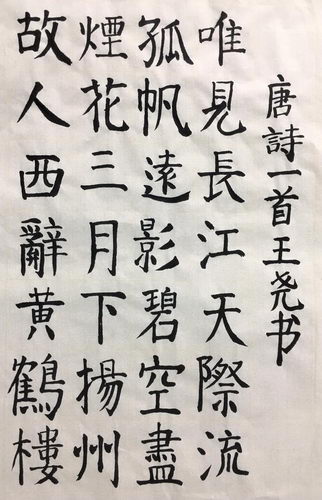 故人西辭黄鶴樓
煙花三月下揚州
孤帆遠影碧空盡
唯見長江天際流
唐詩一首王尧书